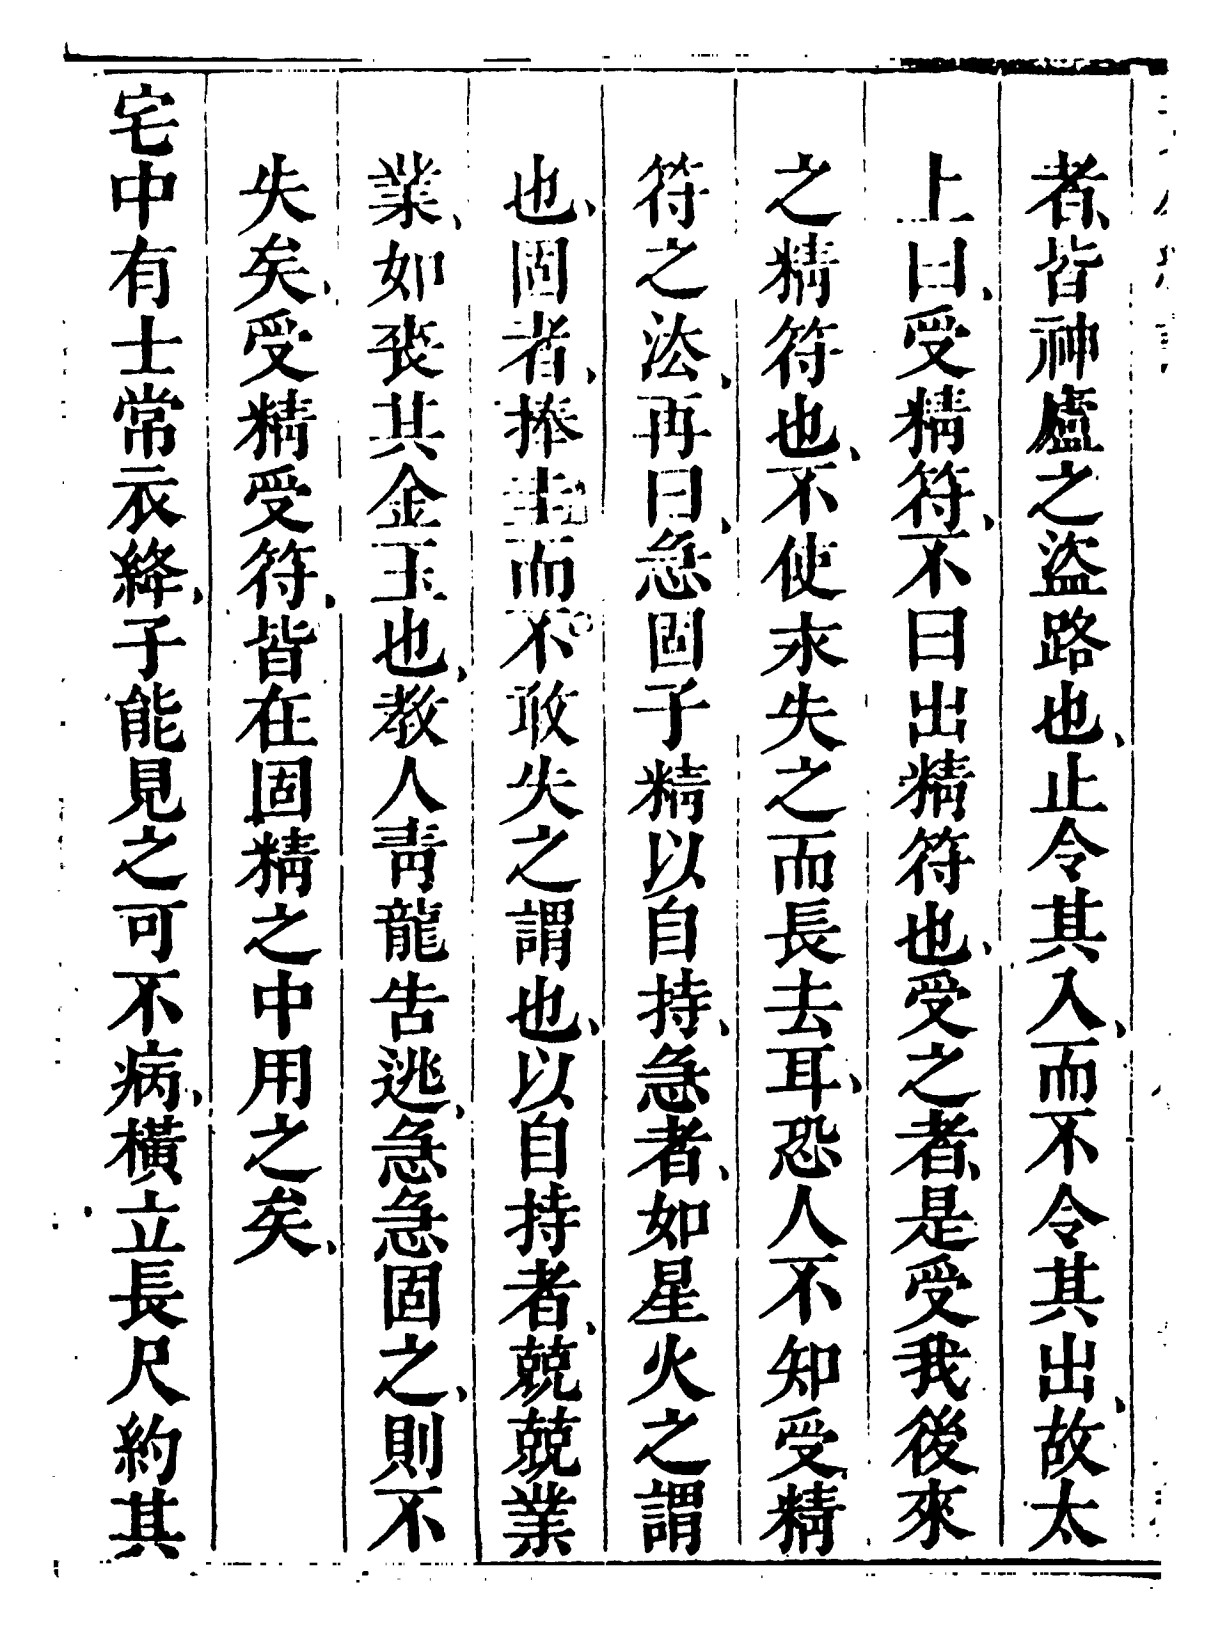 者、皆神廬之盜路也、止令其入、而不令其出、故太
上曰、受精符、不曰出精符也、受之者、是受我後來
之精符也、不使求失之而長去耳、恐人不知受精
符之法、再曰、急固子精以自持、急者、如星火之謂
也、固者、捧圭而不敢失之謂也、以自持者、兢兢業
業、如喪其金玉也、教人青龍告逃、急急固之、則不
失矣、受精受符、皆在固精之中用之矣、
宅中有士常衣絳、子能見之可不病、橫立長尺約其